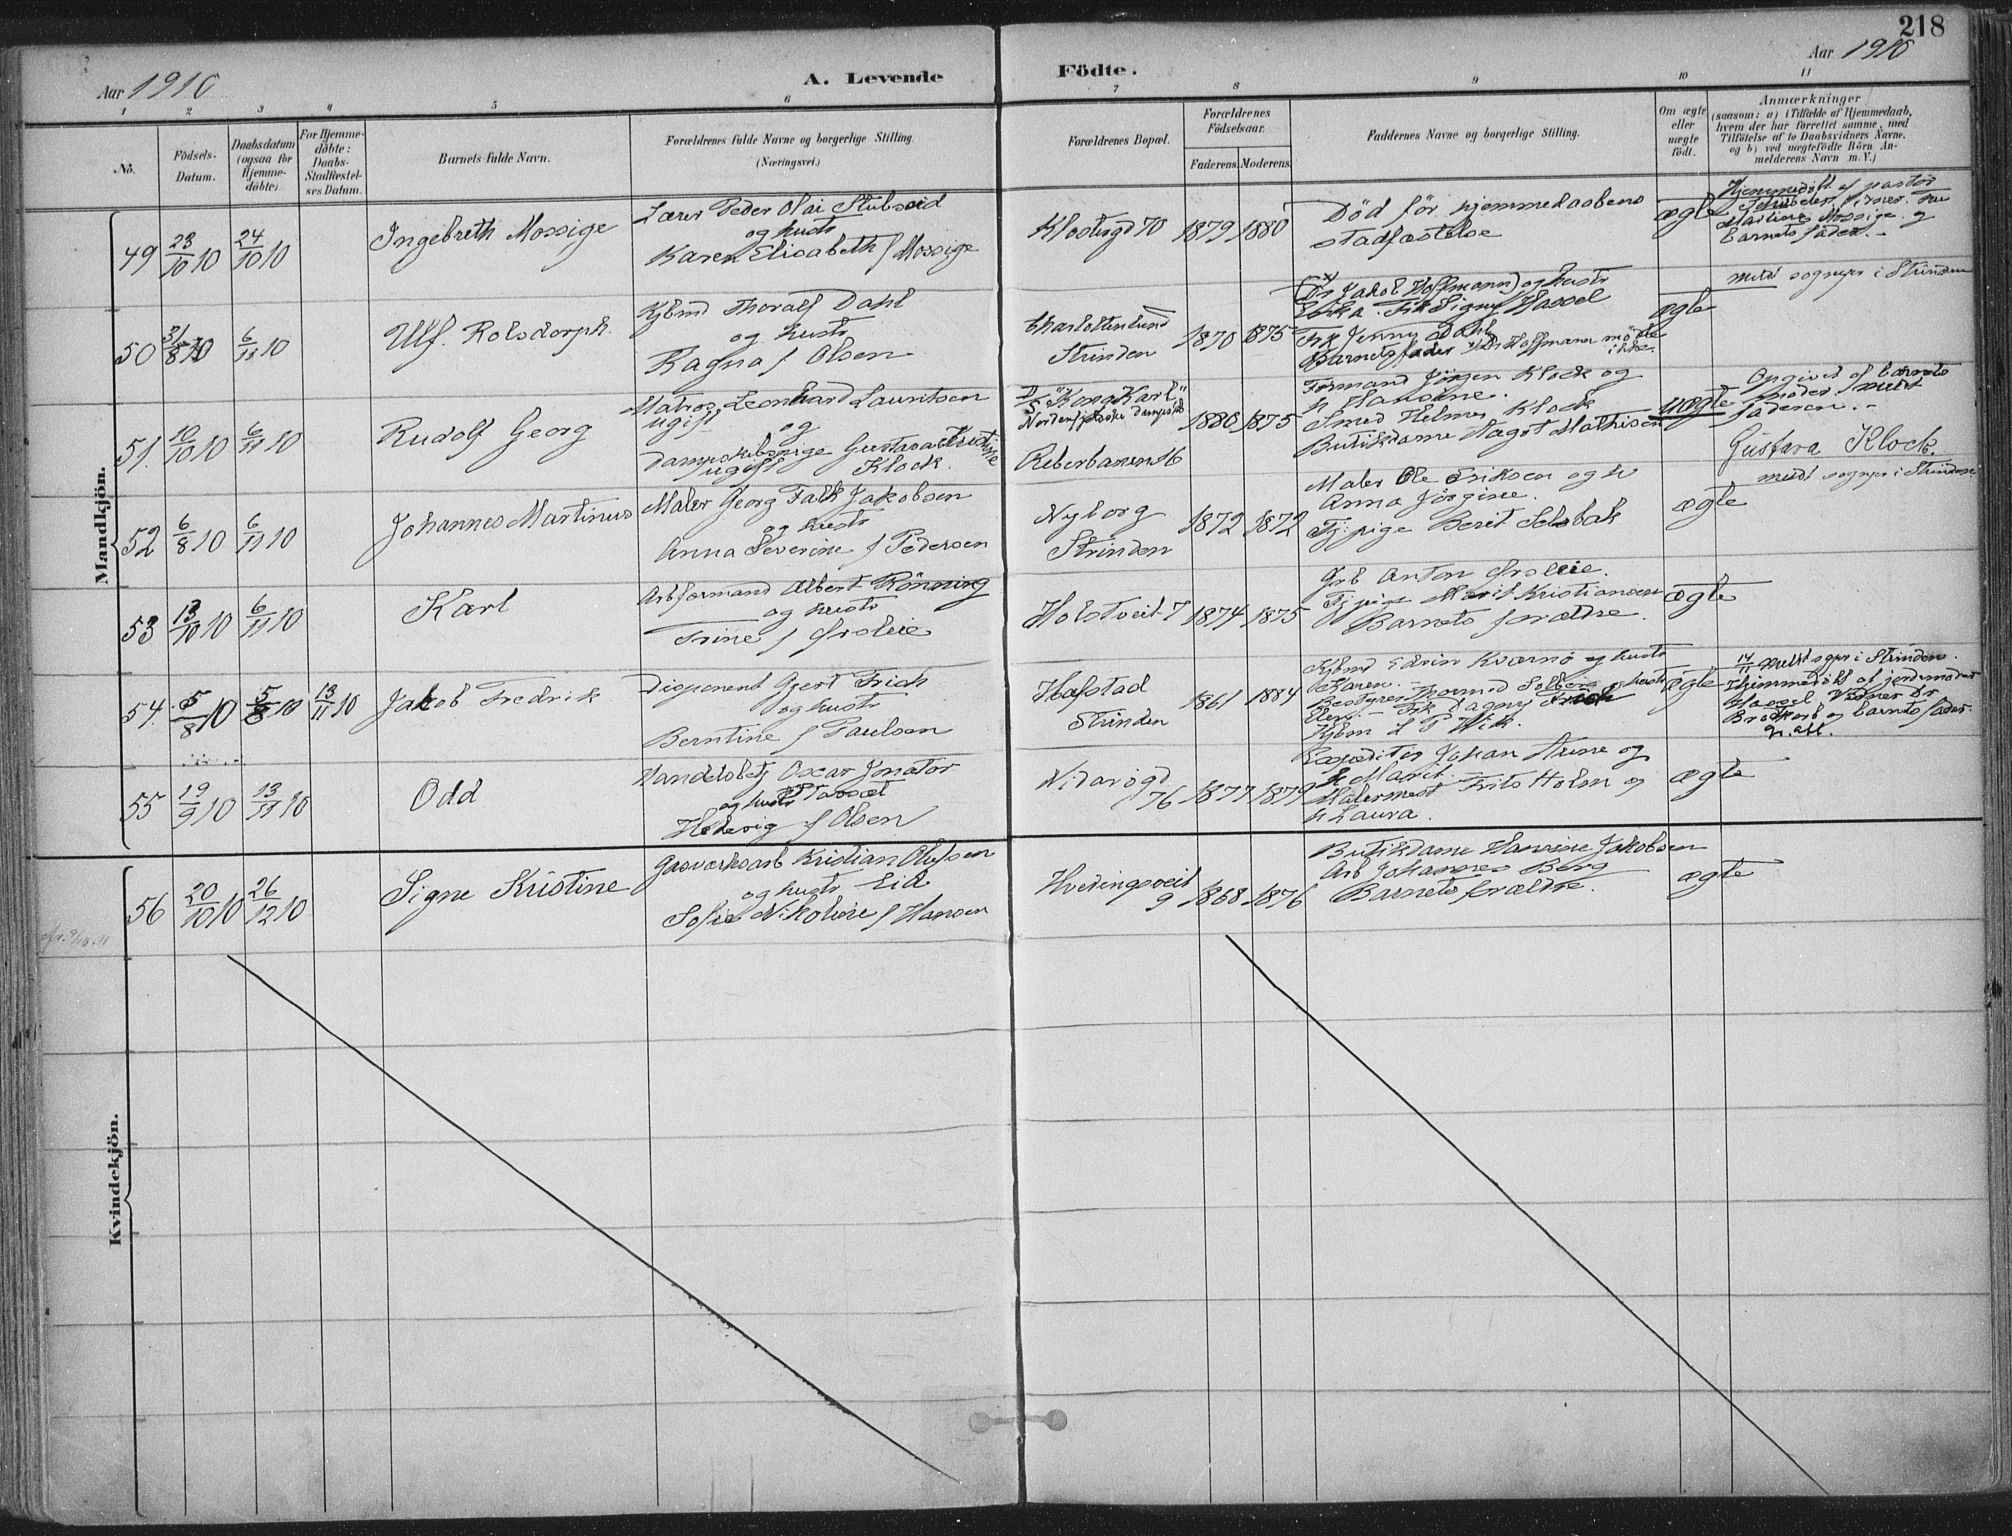 218
Aar 1910
A. Levende Födte.
Aar 1910
1 2 3 4 5 6 7 8 9 10 11
No.
Födsels-Datum.
Daabsdatum (ogsaa for Hjemme-döbte).
For Hjemme-döbte: Daabs-Stadfæstel-ses Datum.
Barnets fulde Navn.
Forældrenes fulde Navne og borgerlige Stilling. (Næringsvei.)
Forældrenes Bopæl.
Forældrenes Födselsaar.
Faderens. Moderens.
Faddernes Navne og borgerlige Stilling.
Om ægte eller uægte födt.
Anmærkninger
(saasom: a) i Tilfælde af Hjemmedaab, hvem der har forrettet samme, med Tilföielse af to Daabsvidners Navne, og b) ved uægtefödte Börn An-melderens Navn m. V.)
Mandkjön.
49 23/10 10 24/10 10
Ingebreth Mossige
Lærer Peder Olai Stubseid
og hustr
Karen Elisabeth f Mossige
Klostergd 70 1879 1880
Död för hjemmedaabens
stadfæstelse
ægte
Hjemmedöbt af pastor
Martine Mossige og
barnets fader. -
50 31/8 10 6/11 10
Ulf. Rolsdorph.
Kjbmd Thoralf Dahl
og hustr
Ragna f Olsen
Charlottenlund
Strinden
1870 1875
(Dr Jakob Hoffmann) og hustr
Frk Signy Hassel
Frk Jenny Dahl
Barnets fader x) Dr Hoffmann mötte
ikke.
ægte
meldt sogner i Strinden
51. 10/10 10 6/11 10
Rudolf Georg
Matros Leonhard Lauritsen
ugift
og
Dampskibspige Gustava Kristine
ugift Klock.
D/S "Kong Karl"
Nordenfjeldske Dampskib
Reberbanen 16
1880 1875
Formand Jörgen Klock og
h Hansine.
Smed Helmer Klock
Butikdame Dagot Mathisen
uægte
Opgivet af barnets
moder, meldt
faderen. -
Gustava Klock.
52 6/8 10 6/11 10
Johannes Martinus
Maler Georg Falk Jakobsen
og hustr
Anna Severine f Pedersen
Nyborg
Strinden
1872 1872
Maler Ole Eriksen og h
Anna Jörgine.
Tj.pige Berit Selsbak
ægte
meldt sogner i Strinden
53 13/10 10 6/11 10
Karl
Arbformand Albert Rönning
og hustr
Trine f Örsleie
Holstveit 7 1874 1875
Grb Anton Örsleie.
Tj pige Marit Kristiansen
Barnets forældre.
ægte
54. 5/8 10 5/8 10 13/11 10
Jakob Fredrik
Disponent Gjert Frich
og hustr
Berntine f Paulsen
Hafstad
Strinden
1861 1884
Kjbmd Edvin Kvernö og hustr
Karen. -
Bestyrer Thormod Solberg og hustr
- Frk Dagny Frich
Kjbm L P Wik.
ægte
14/11 meldt sogner i Strinden.
Hjemmedöbt af jordmoder
Hassel Vidner Dr
og barnets fader.
55 19/9 10 13/11 10
Odd
Handelsbetj Oscar Ignator
og hustr
Hedevig f Olsen
Nidarösgd
76 1877 1879
Expeditör Johan Aune og
h Marit.
Malermest Frits Holm og
h Laura.
ægte
Kvindekjön.
56 20/10 10 26/12 10
Signe Kristine
Gasværksarb Kristian Olufsen
og hustr Eid
Sofie Nikoline f Hansen
Hveding​sveit
9 1868 1876
Butikdame Hansine Jakobsen
Arb Johannes Berg
Barnets forældre.
ægte